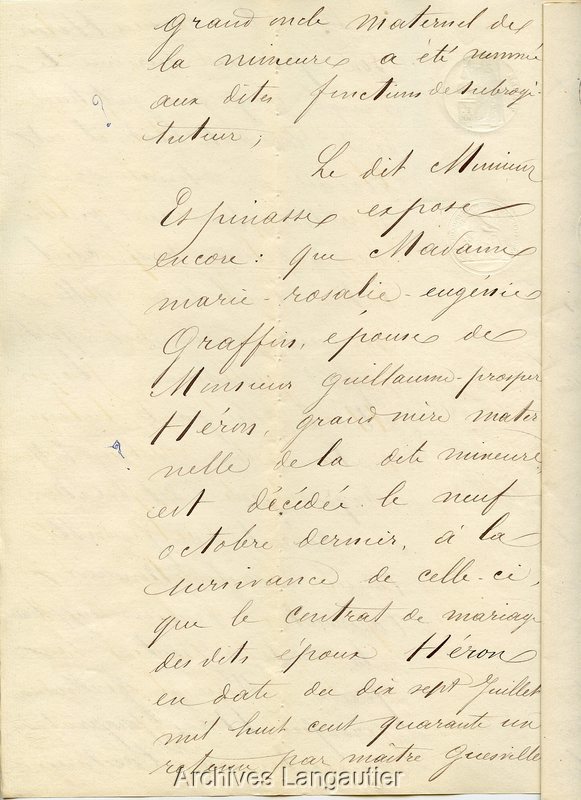 grand oncle maternel de
la mineure a été nommé
aux dites fonctions de subrogé-
tuteur;
Le dit Monsieur
Espinasse expose
encore: que Madame
marie-rosalie-eugénie
Graffin, épouse de
Monsieur guillaume-prosper
Héron, grand mère mater
nelle de la dite mineure,
est décédée le neuf
octobre dernier, à la
survivance de celle-ci,
que le contrat de mariage
des dits époux Héron
en date du dix sept Juillet
mil huit cent quarante un
retenu par maître Guesville
Archives Langautier